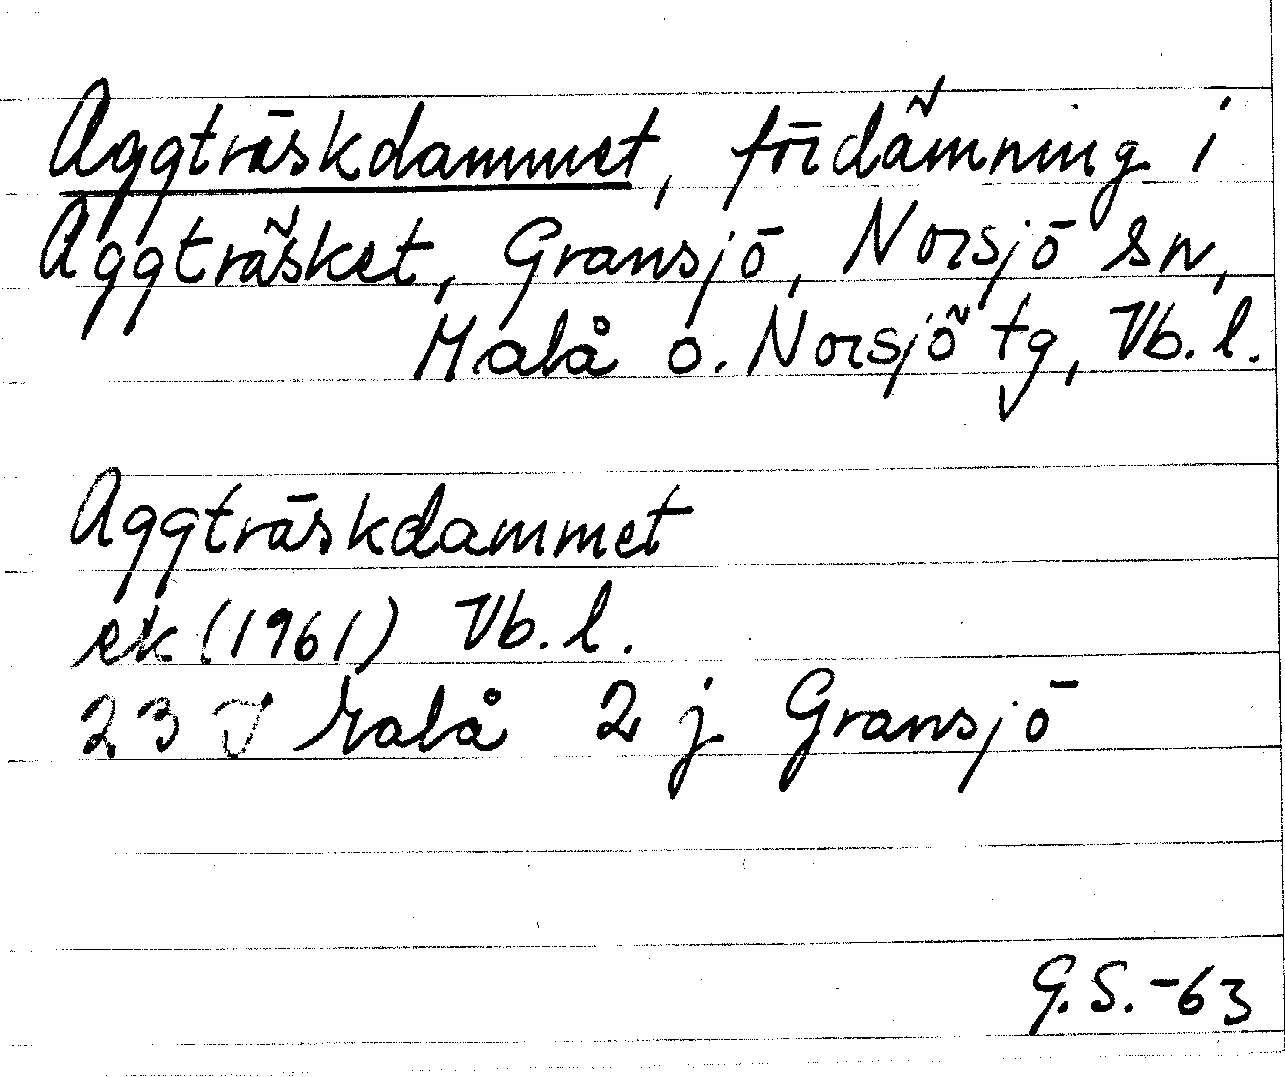 Aggträskdammet, fördämning i
Aggträsket, Gransjö, Norsjö sn,
Malå o. Norsjö tg, Vb. l.
Aggträskdammet
ek (1961) Vb. l.
23 J Malå 2 j Gransjö
G.S. -63